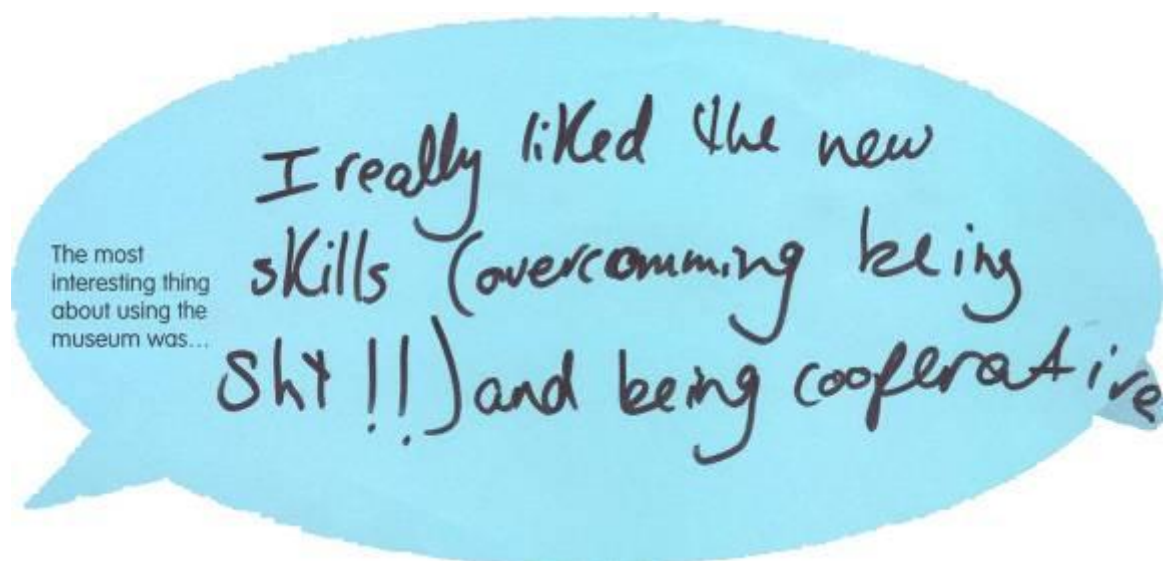 The most
interesting thing
about using the
museum was...
I really liked the new
skills (overcomming being
shy !!) and being cooperative